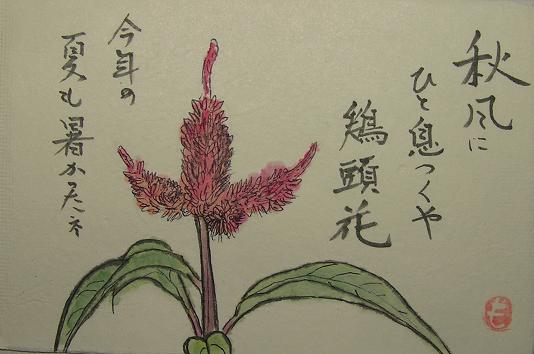 秋風に
ひと息つくや
鶏頭花
今年の
夏も暑かったネ